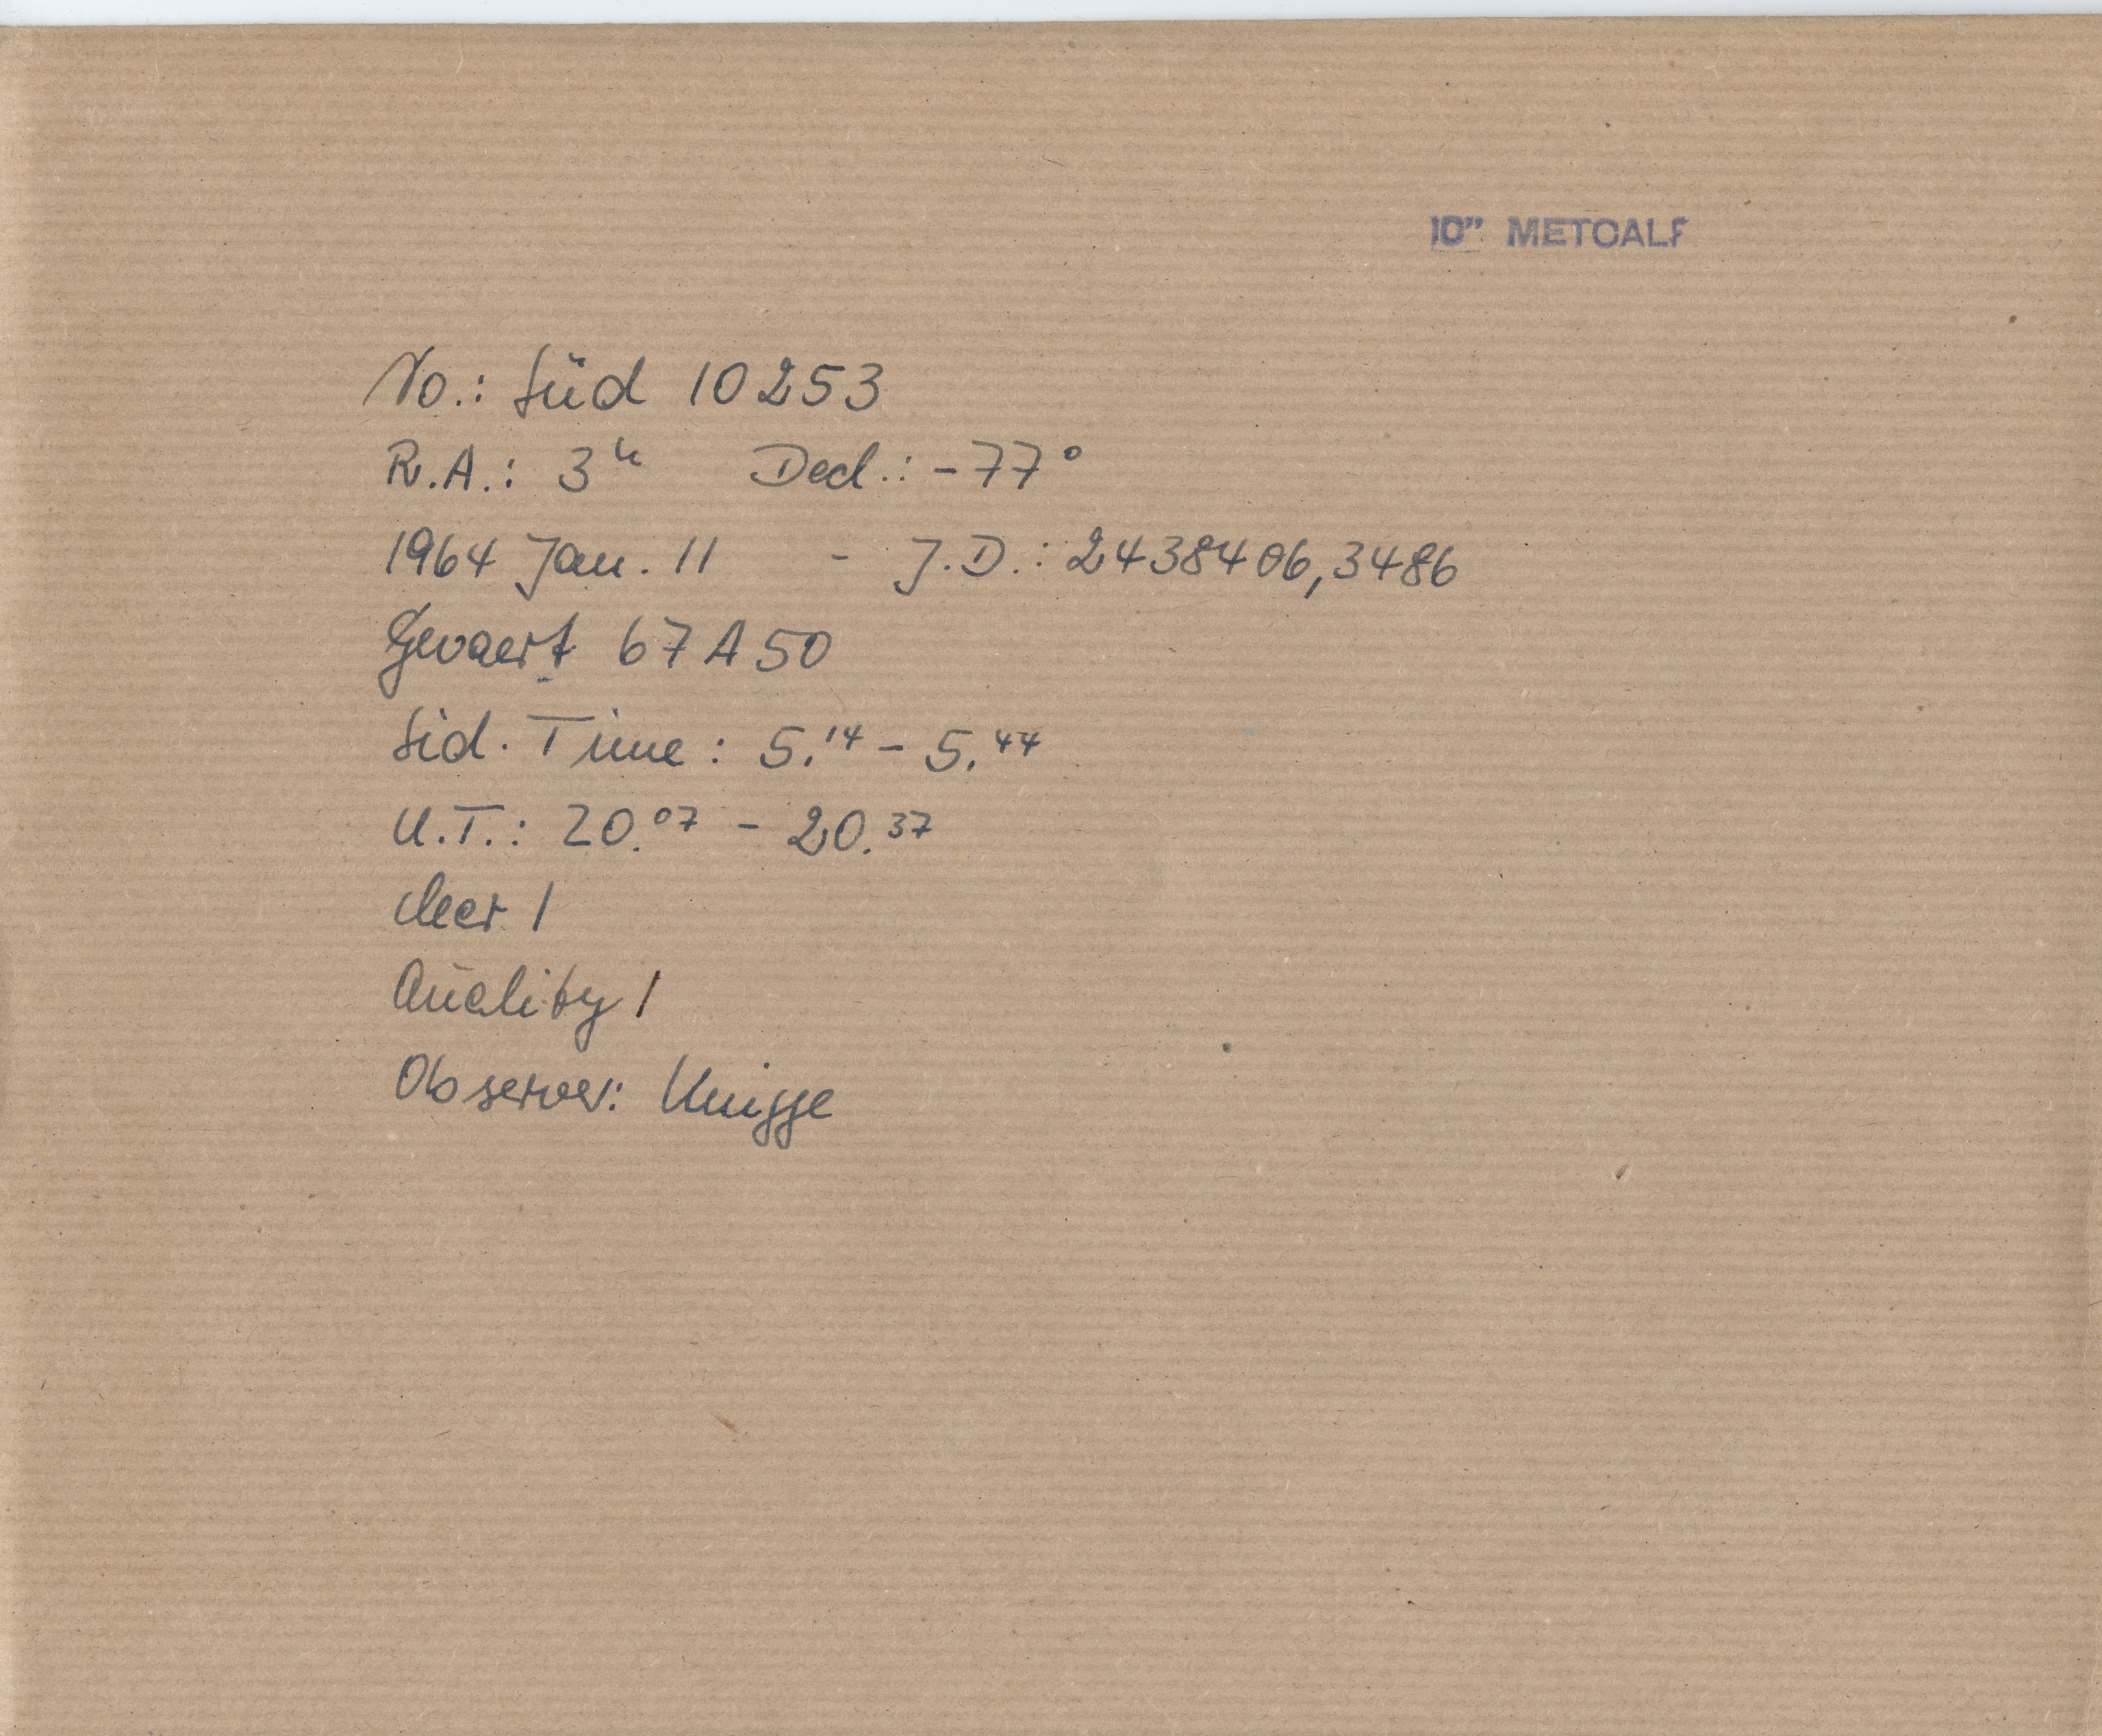 10" METCALF
No.: Süd 10253
R.A.: 3ʰ Decl.: -77°
1964 Jan. 11 - J.D.: 2438406,3486
Gevaert 67A50
Sid. Time: 5.¹⁴ - 5.⁴⁴
U.T.: 20.⁰⁷ - 20.³⁷
clear 1
Quality 1
Observer: Knigge